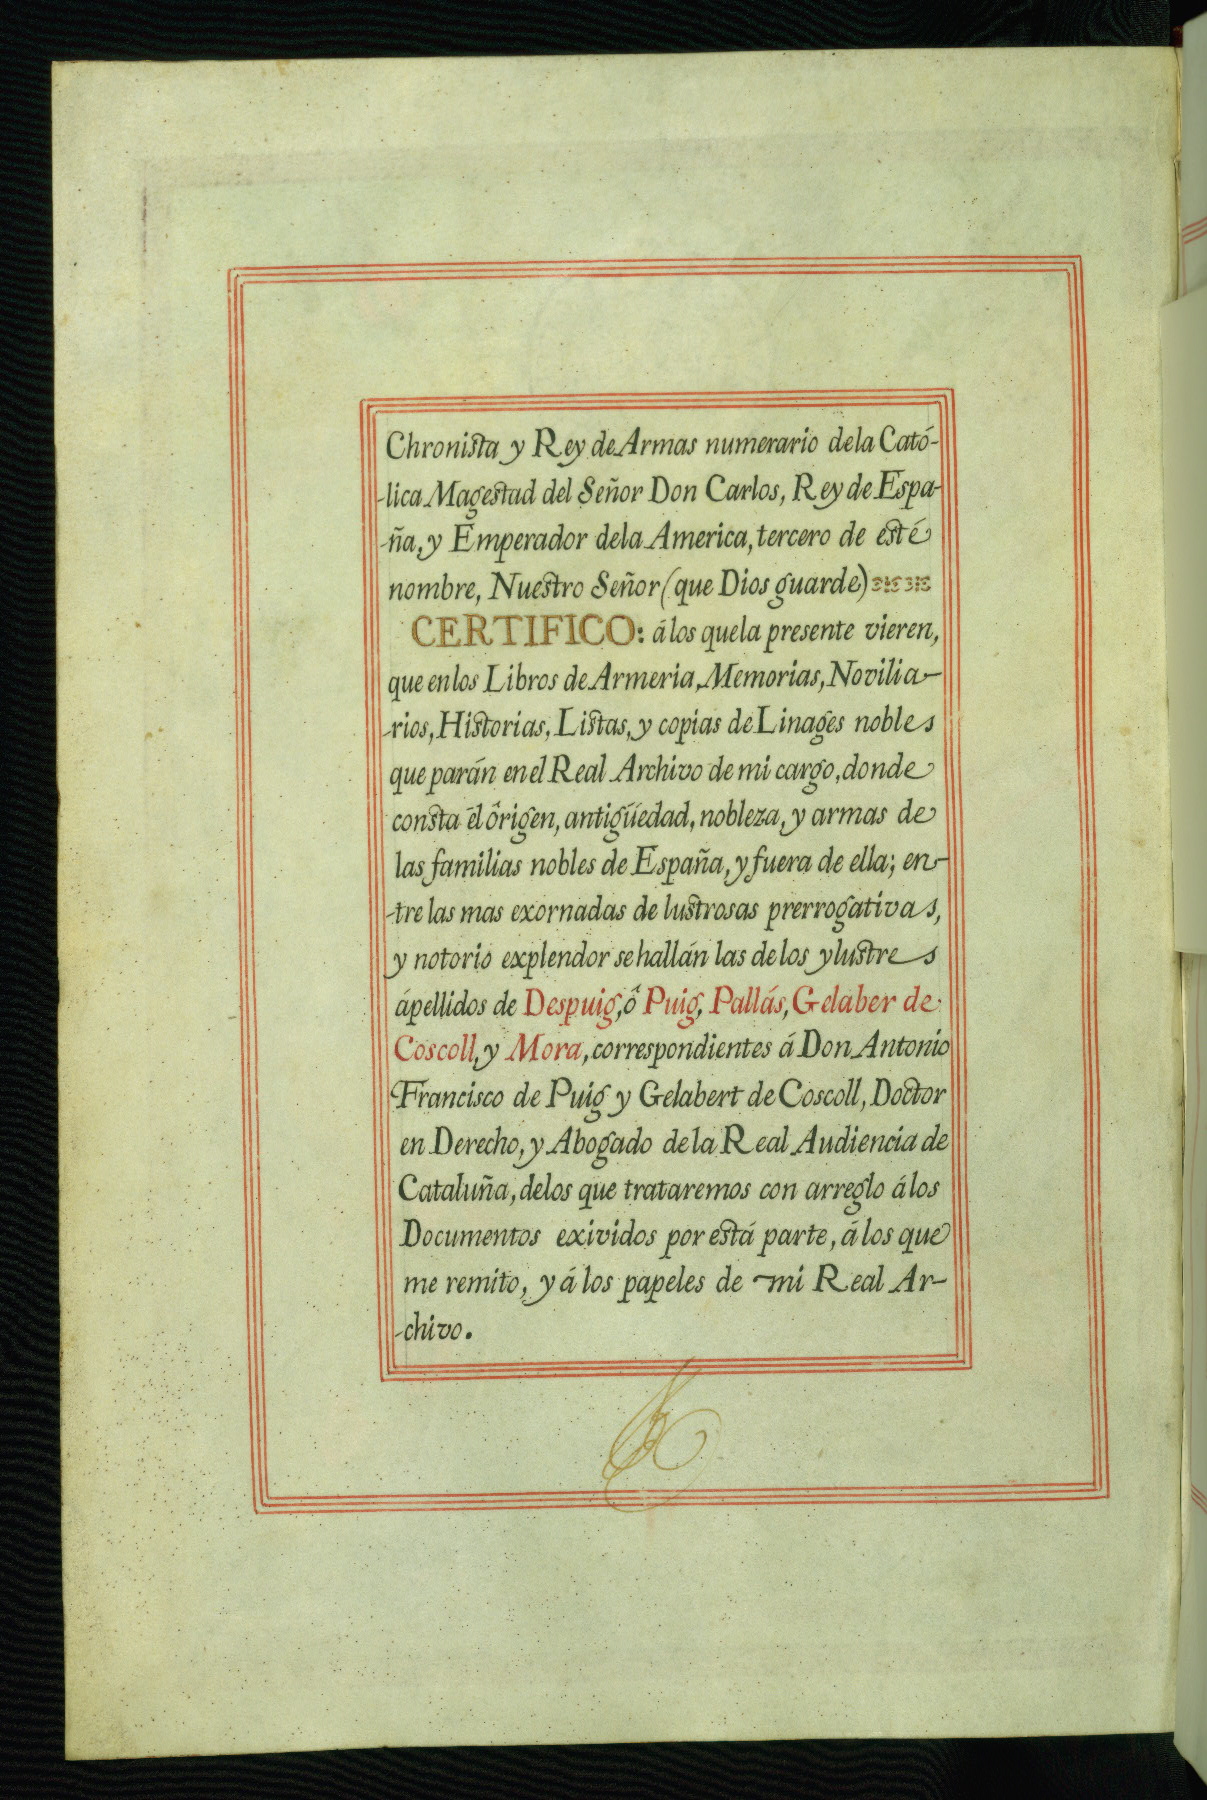 Chronista y Rey de Armas numerario dela Cató-
-lica Magestad del Señor Don Carlos, Rey de Espa-
-ña, y Emperador dela America, tercero de esté
nombre, Nuestro Señor (que Dios guarde)
CERTIFICO: á los quela presente vieren,
que enlos Libros de Armeria, Memorias, Novilia-
-rios, Historias, Listas, y copias de Linages nobles
que parán enel Real Archivo de mi cargo, donde
consta él ôrigen, antigüedad, nobleza, y armas de
las familias nobles de España, y fuera de ella; en-
-tre las mas exornadas de lustrosas prerrogativas,
y notorio explendor sehallán las delos ylustres
ápellidos de Despuig, ô Puig, Pallás, Gelaber de
Coscoll, y Mora, correspondientes á Don Antonio
Francisco de Puig y Gelabert de Coscoll, Doctor
en Derecho, y Abogado dela Real Audiencia de
Cataluña, delos que trataremos con arreglo álos
Documentos exividos por está parte, á los que
me remito, y á los papeles de mi Real Ar-
-chivo.